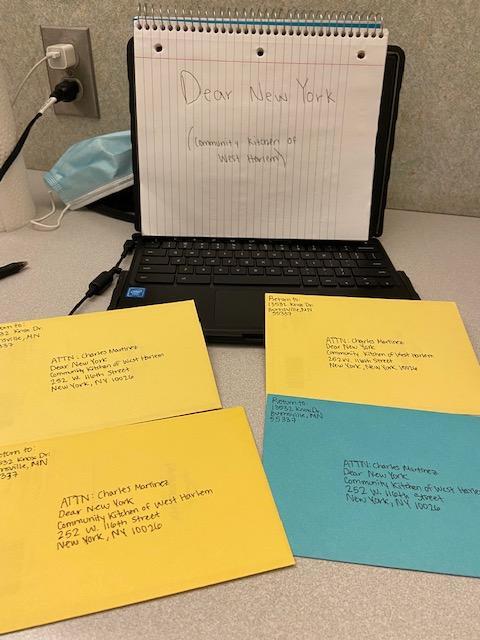 Dear New York
(Community Kitchen of
West Harlem)
urn to:
532 Knox Dr.
nsville, MN
5337
ATTN: Charles Martinez
Dear New York
Community Kitchen of West Harlem
252 W. 116th Street
New York, NY 10026
Return to:
13532 Knox Dr.
Burnsville, MN
55337
ATTN: Charles Martinez
Dear New York
Community Kitchen of West Harlem
252 W. 116th Street
New York, NY 10026
eturn to:
532 Knox Dr.
rnsville, MN
5337
ATTN: Charles Martinez
Dear New York
Community Kitchen of West Harlem
252 W. 116th Street
New York, NY 10026
Return to:
13532 Knox Dr.
Burnsville, MN
55337
ATTN: Charles Martinez
Dear New York
Community Kitchen of West Harle
252 W. 116th Street
New York, NY 10026